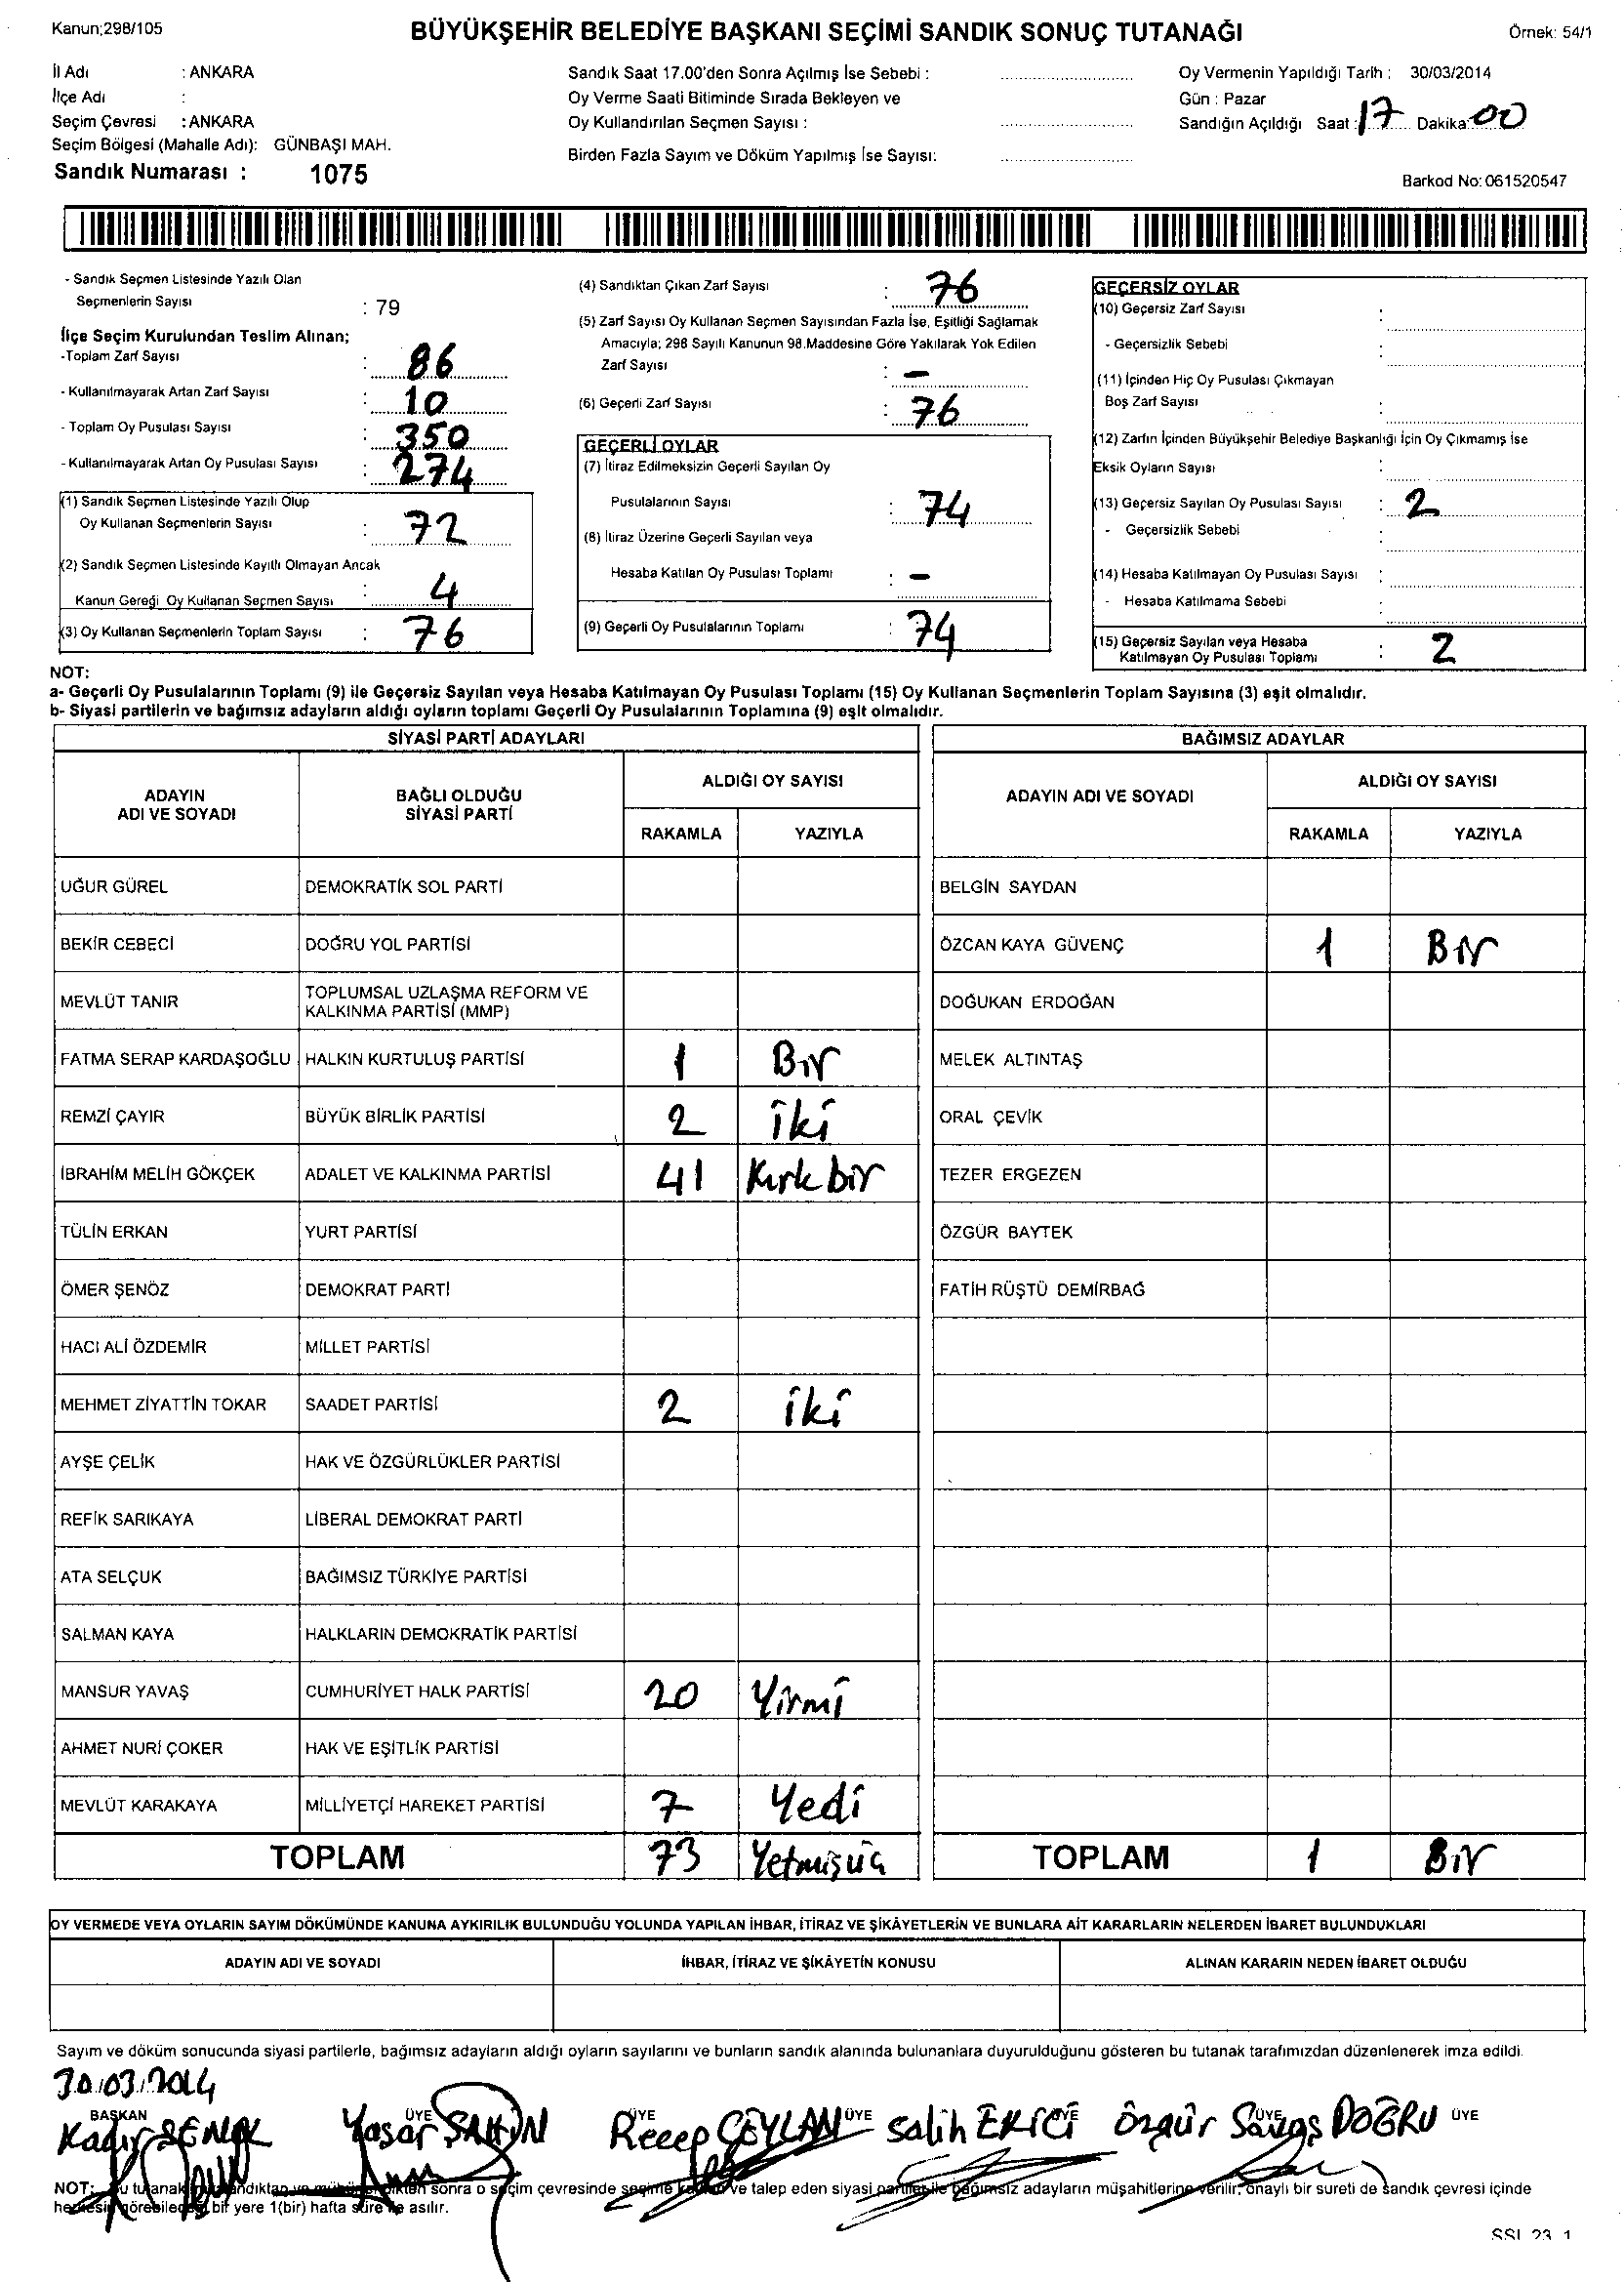 Kanun;298/105
BÜYÜKŞEHİR BELEDİYE BAŞKANI SEÇİMİ SANDIK SONUÇ TUTANAĞI
Örnek: 54/1
İl Adı : ANKARA
İlçe Adı :
Seçim Çevresi : ANKARA
Seçim Bölgesi (Mahalle Adı): GÜNBAŞI MAH.
Sandık Numarası : 1075
Sandık Saat 17.00'den Sonra Açılmış İse Sebebi :
Oy Verme Saati Bitiminde Sırada Bekleyen ve
Oy Kullandırılan Seçmen Sayısı :
Birden Fazla Sayım ve Döküm Yapılmış İse Sayısı:
Oy Vermenin Yapıldığı Tarih : 30/03/2014
Gün : Pazar
Sandığın Açıldığı Saat : 17 Dakika: 00
Barkod No: 061520547
- Sandık Seçmen Listesinde Yazılı Olan
Seçmenlerin Sayısı : 79
İlçe Seçim Kurulundan Teslim Alınan;
-Toplam Zarf Sayısı : 86
- Kullanılmayarak Artan Zarf Sayısı : 10
- Toplam Oy Pusulası Sayısı : 350
- Kullanılmayarak Artan Oy Pusulası Sayısı : 274
(1) Sandık Seçmen Listesinde Yazılı Olup
Oy Kullanan Seçmenlerin Sayısı : 72
(2) Sandık Seçmen Listesinde Kayıtlı Olmayan Ancak
Kanun Gereği Oy Kullanan Seçmen Sayısı : 4
(3) Oy Kullanan Seçmenlerin Toplam Sayısı : 76
(4) Sandıktan Çıkan Zarf Sayısı : 76
(5) Zarf Sayısı Oy Kullanan Seçmen Sayısından Fazla İse, Eşitliği Sağlamak
Amacıyla; 298 Sayılı Kanunun 98.Maddesine Göre Yakılarak Yok Edilen
Zarf Sayısı : -
(6) Geçerli Zarf Sayısı : 76
GEÇERLİ OYLAR
(7) İtiraz Edilmeksizin Geçerli Sayılan Oy
Pusulalarının Sayısı : 74
(8) İtiraz Üzerine Geçerli Sayılan veya
Hesaba Katılan Oy Pusulası Toplamı : -
(9) Geçerli Oy Pusulalarının Toplamı : 74
GEÇERSİZ OYLAR
(10) Geçersiz Zarf Sayısı :
- Geçersizlik Sebebi :
(11) İçinden Hiç Oy Pusulası Çıkmayan
Boş Zarf Sayısı :
(12) Zarfın İçinden Büyükşehir Belediye Başkanlığı İçin Oy Çıkmamış İse
Eksik Oyların Sayısı :
(13) Geçersiz Sayılan Oy Pusulası Sayısı : 2
- Geçersizlik Sebebi :
(14) Hesaba Katılmayan Oy Pusulası Sayısı :
- Hesaba Katılmama Sebebi :
(15) Geçersiz Sayılan veya Hesaba
Katılmayan Oy Pusulası Toplamı : 2
NOT:
a- Geçerli Oy Pusulalarının Toplamı (9) ile Geçersiz Sayılan veya Hesaba Katılmayan Oy Pusulası Toplamı (15) Oy Kullanan Seçmenlerin Toplam Sayısına (3) eşit olmalıdır.
b- Siyasi partilerin ve bağımsız adayların aldığı oyların toplamı Geçerli Oy Pusulalarının Toplamına (9) eşit olmalıdır.
SİYASİ PARTİ ADAYLARI
ADAYIN
ADI VE SOYADI
BAĞLI OLDUĞU
SİYASİ PARTİ
ALDIĞI OY SAYISI
RAKAMLA YAZIYLA
UĞUR GÜREL DEMOKRATİK SOL PARTİ
BEKİR CEBECİ DOĞRU YOL PARTİSİ
MEVLÜT TANIR TOPLUMSAL UZLAŞMA REFORM VE
KALKINMA PARTİSİ (MMP)
FATMA SERAP KARDAŞOĞLU HALKIN KURTULUŞ PARTİSİ 1 Bir
REMZİ ÇAYIR BÜYÜK BİRLİK PARTİSİ 2 iki
İBRAHİM MELİH GÖKÇEK ADALET VE KALKINMA PARTİSİ 41 Kırk bir
TÜLİN ERKAN YURT PARTİSİ
ÖMER ŞENÖZ DEMOKRAT PARTİ
HACI ALİ ÖZDEMİR MİLLET PARTİSİ
MEHMET ZİYATTİN TOKAR SAADET PARTİSİ 2 iki
AYŞE ÇELİK HAK VE ÖZGÜRLÜKLER PARTİSİ
REFİK SARIKAYA LİBERAL DEMOKRAT PARTİ
ATA SELÇUK BAĞIMSIZ TÜRKİYE PARTİSİ
SALMAN KAYA HALKLARIN DEMOKRATİK PARTİSİ
MANSUR YAVAŞ CUMHURİYET HALK PARTİSİ 20 Yirmi
AHMET NURİ ÇOKER HAK VE EŞİTLİK PARTİSİ
MEVLÜT KARAKAYA MİLLİYETÇİ HAREKET PARTİSİ 7 Yedi
TOPLAM 73 Yetmişüç
BAĞIMSIZ ADAYLAR
ADAYIN ADI VE SOYADI
ALDIĞI OY SAYISI
RAKAMLA YAZIYLA
BELGİN SAYDAN
ÖZCAN KAYA GÜVENÇ 1 Bir
DOĞUKAN ERDOĞAN
MELEK ALTINTAŞ
ORAL ÇEVİK
TEZER ERGEZEN
ÖZGÜR BAYTEK
FATİH RÜŞTÜ DEMİRBAĞ
TOPLAM 1 Bir
OY VERMEDE VEYA OYLARIN SAYIM DÖKÜMÜNDE KANUNA AYKIRILIK BULUNDUĞU YOLUNDA YAPILAN İHBAR, İTİRAZ VE ŞİKÂYETLERİN VE BUNLARA AİT KARARLARIN NELERDEN İBARET BULUNDUKLARI
ADAYIN ADI VE SOYADI İHBAR, İTİRAZ VE ŞİKÂYETİN KONUSU ALINAN KARARIN NEDEN İBARET OLDUĞU
Sayım ve döküm sonucunda siyasi partilerle, bağımsız adayların aldığı oyların sayılarını ve bunların sandık alanında bulunanlara duyurulduğunu gösteren bu tutanak tarafımızdan düzenlenerek imza edildi.
30/03/2014
BAŞKAN ÜYE ÜYE ÜYE ÜYE ÜYE ÜYE
Kadir Yaşar ŞAHİN Recep CEYLAN Salih EKİCİ Özgür Savaş DOĞRU
NOT: Bu tutanak sonra o seçim çevresinde seçime ve talep eden siyasi partiler ile bağımsız adayların müşahitlerine verilir; onaylı bir sureti de sandık çevresi içinde
herkesin görebileceği bir yere 1(bir) hafta süre ile asılır.